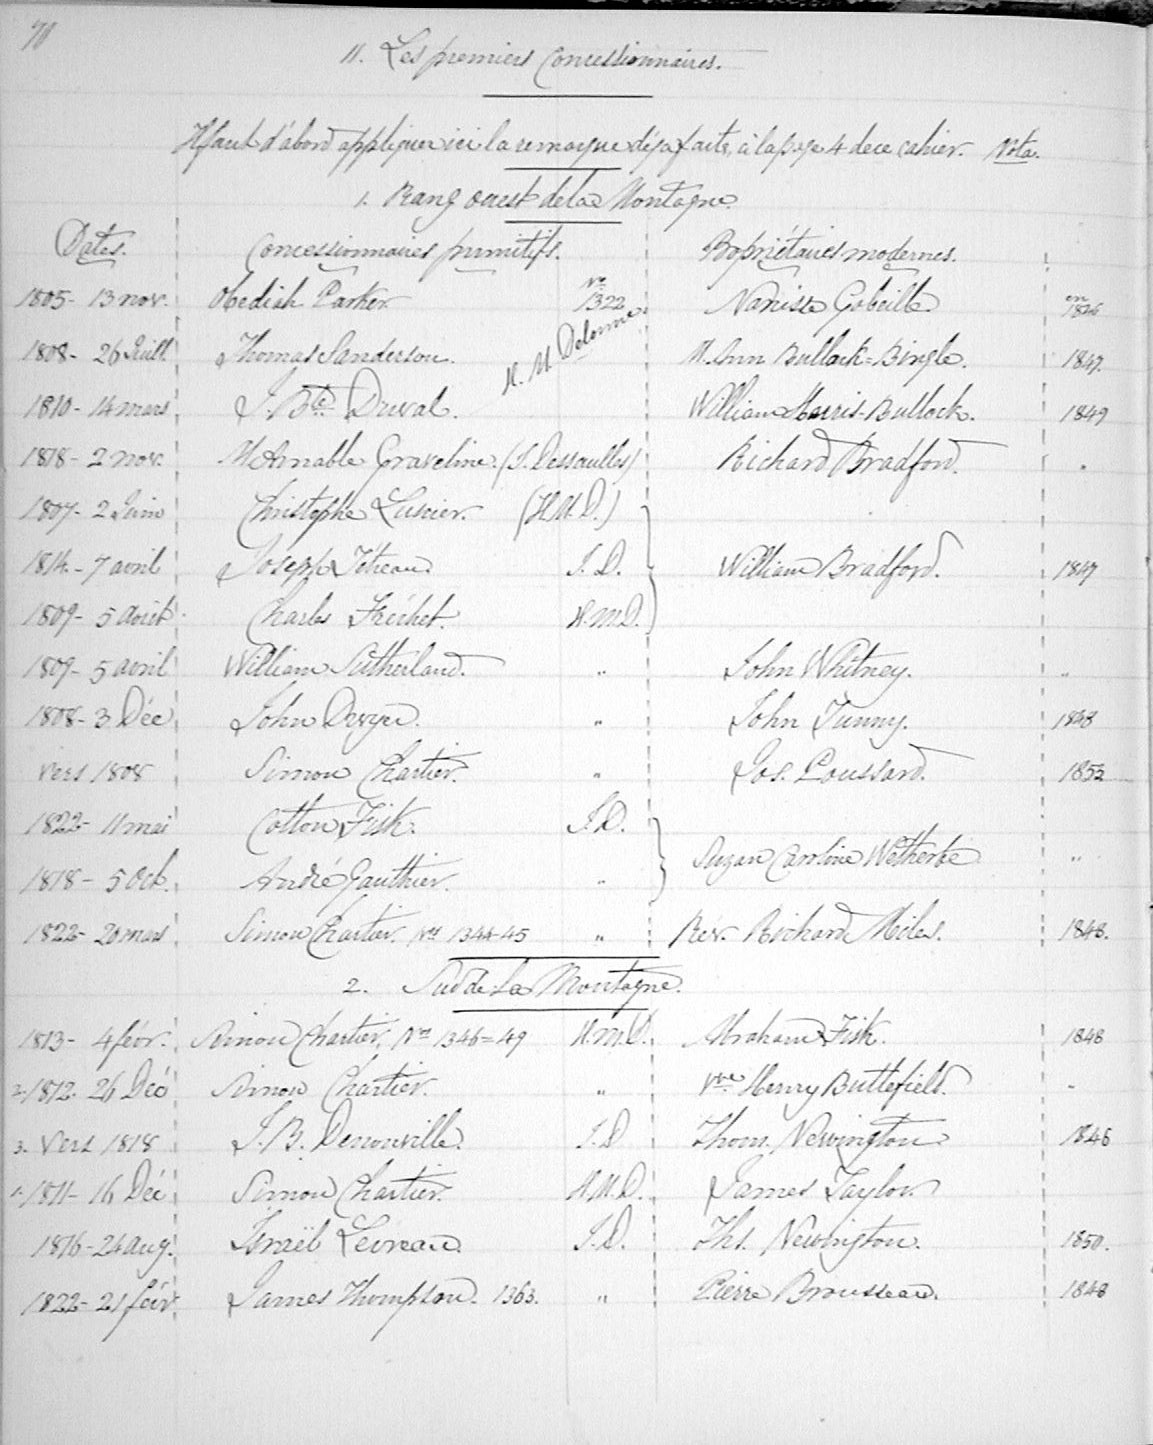 70
11. Les premiers Concessionnaires.
Il faut d'abord appliquer ici la remarque déja faite, à la page 4 de ce cahier. Nota.
1. Rang ouest de la Montagne.
Dates. Concessionnaires primitifs. Propriétaires modernes.
1805 - 13 nov. Obediah Parker No 1322 Narcisse Gobeille en 1846
1808 - 26 Juill. Thomas Sanderson. H. M. Delorme. M. Ann Bullock = Bingle. 1847.
1810 - 14 mars J. Bte Duval. William Harris-Bullock. 1849
1818 - 2 nov. M Amable Graveline. (J. Dessaulles) Richard Bradford. "
1807 - 2 Juin Christophe Lussier. (H.M.D.)
1814 - 7 avril Joseph Tétreau. J. D. William Bradford. 1847
1809 - 5 Août Charles Fréchet. H.M.D.
1809 - 5 avril William Sutherland. " John Whitney. "
1808 - 3 Déc John Dwyer. " John Tunny. 1848
vers 1808 Simon Chartier. " Jos. Poussard. 1852
1822 - 11 mai Cotton Fisk. J.D.
Suzan Caroline Wetherbe "
1818 - 5 Oct. André Gauthier. "
1822 - 20 mars Simon Chartier. Nos 1344-45 " Rév. Richard Miles. 1848.
2. Sud de La Montagne.
1813 - 4 févr. Simon Chartier, Nos 1346=49 H.M.D. Abraham Fisk. 1848
2. 1812. 26 Déc Simon Chartier. " Vve Henry Buttefield. "
3. Vers 1818 J. B. Denonville. J. D Thom. Newington 1846
1. 1811 - 16 Déc Simon Chartier. H.M.D. James Taylor.
1816 - 24 aug. Israël Levreau. J.D. Ths. Newington. 1850.
1822 - 21 févr. James Thompson. 1363. " Pierre Brousseau. 1848